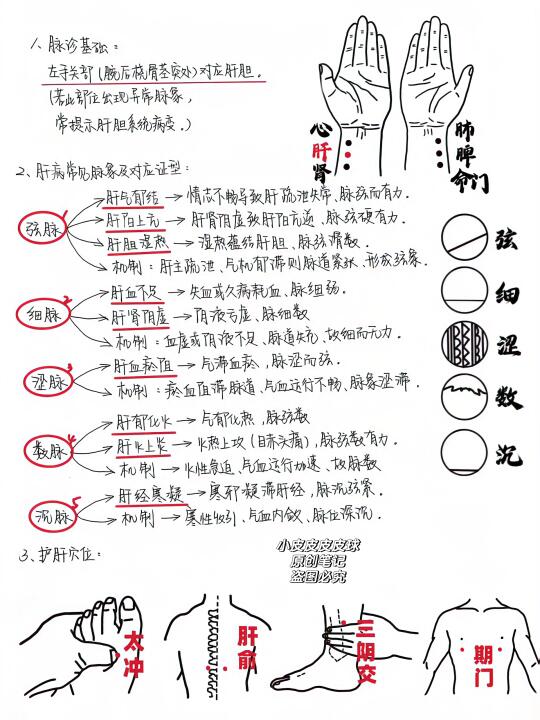 1、脉诊基础:
左手关部(腕后桡骨茎突处)对应肝胆.
(若此部位出现异常脉象,
常提示肝胆系统病变.)
心
肝
肾
肺
脾
命门
2、肝病常见脉象及对应证型:
弦脉 1
肝气郁结 → 情志不畅导致肝疏泄失常、脉弦而有力.
肝阳上亢 → 肝肾阴虚致肝阳亢逆、脉弦硬有力.
肝胆湿热 → 湿热蕴结肝胆、脉弦滑数.
机制:肝主疏泄、气机郁滞则脉道紧张、形成弦象.
细脉 2
肝血不足 → 失血或久病耗血、脉细弱.
肝肾阴虚 → 阴液亏虚、脉细数
机制:血虚或阴液不足、脉道失充、故细而无力.
涩脉 3
肝血瘀阻 → 气滞血瘀,脉涩而弦.
机制:瘀血阻滞脉道、气血运行不畅、脉象涩滞.
数脉 4
肝郁化火 → 气郁化热,脉弦数
肝火上炎 → 火热上攻(目赤头痛),脉弦数有力.
机制 → 火性急迫、气血运行加速、故脉数
沉脉 5
肝经寒凝 → 寒邪凝滞肝经,脉沉弦紧.
机制 → 寒性收引、气血内敛、脉位深沉.
弦
细
涩
数
沉
3、护肝穴位:
小皮皮皮皮球
原创笔记
盗图必究
太冲
肝俞
三阴交
期门